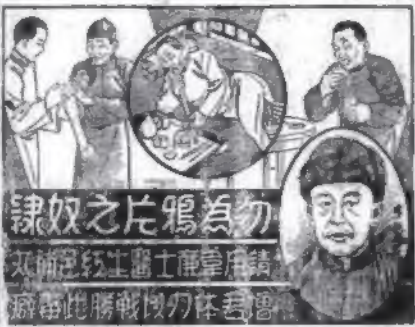 勿為鴉片之奴隸
請用韋廉士醫生紅色補丸
增君体力以戰勝此毒癖